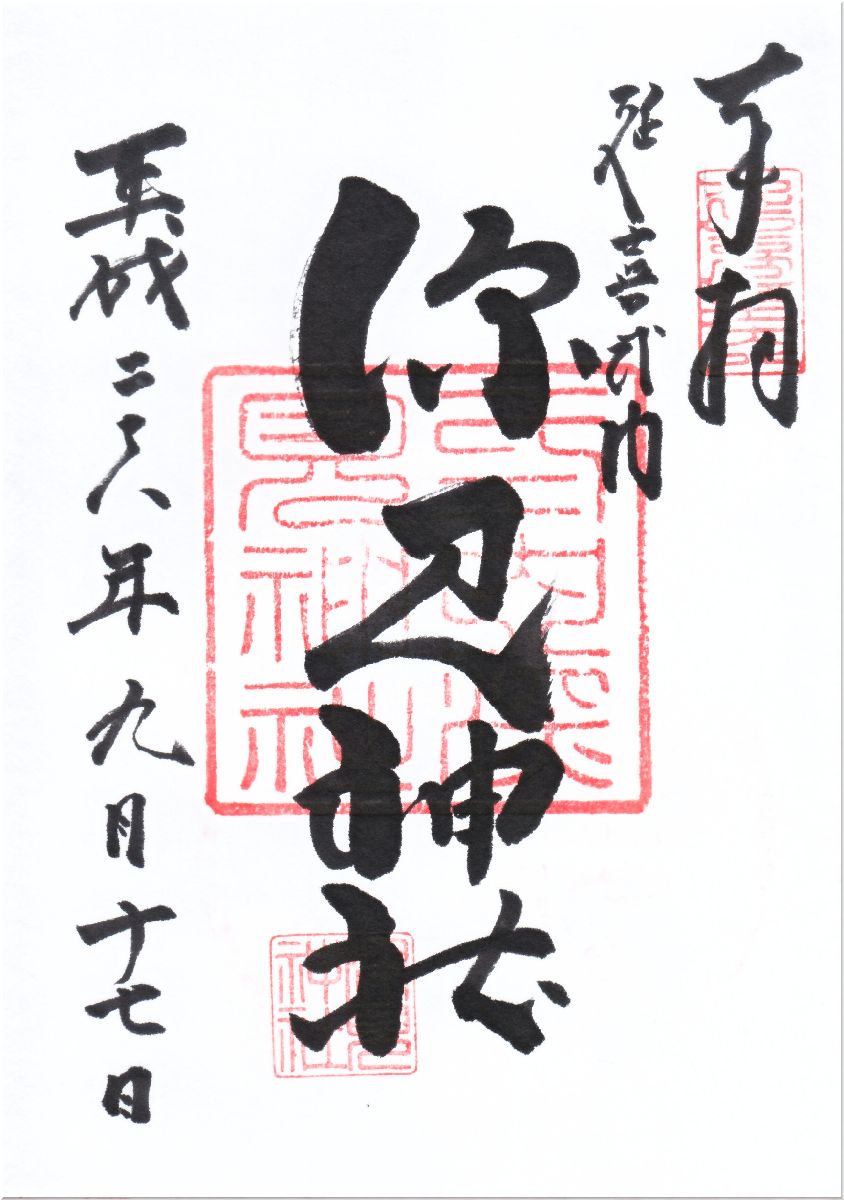 奉拝
延喜式内
深見神社
平成二十八年九月十七日